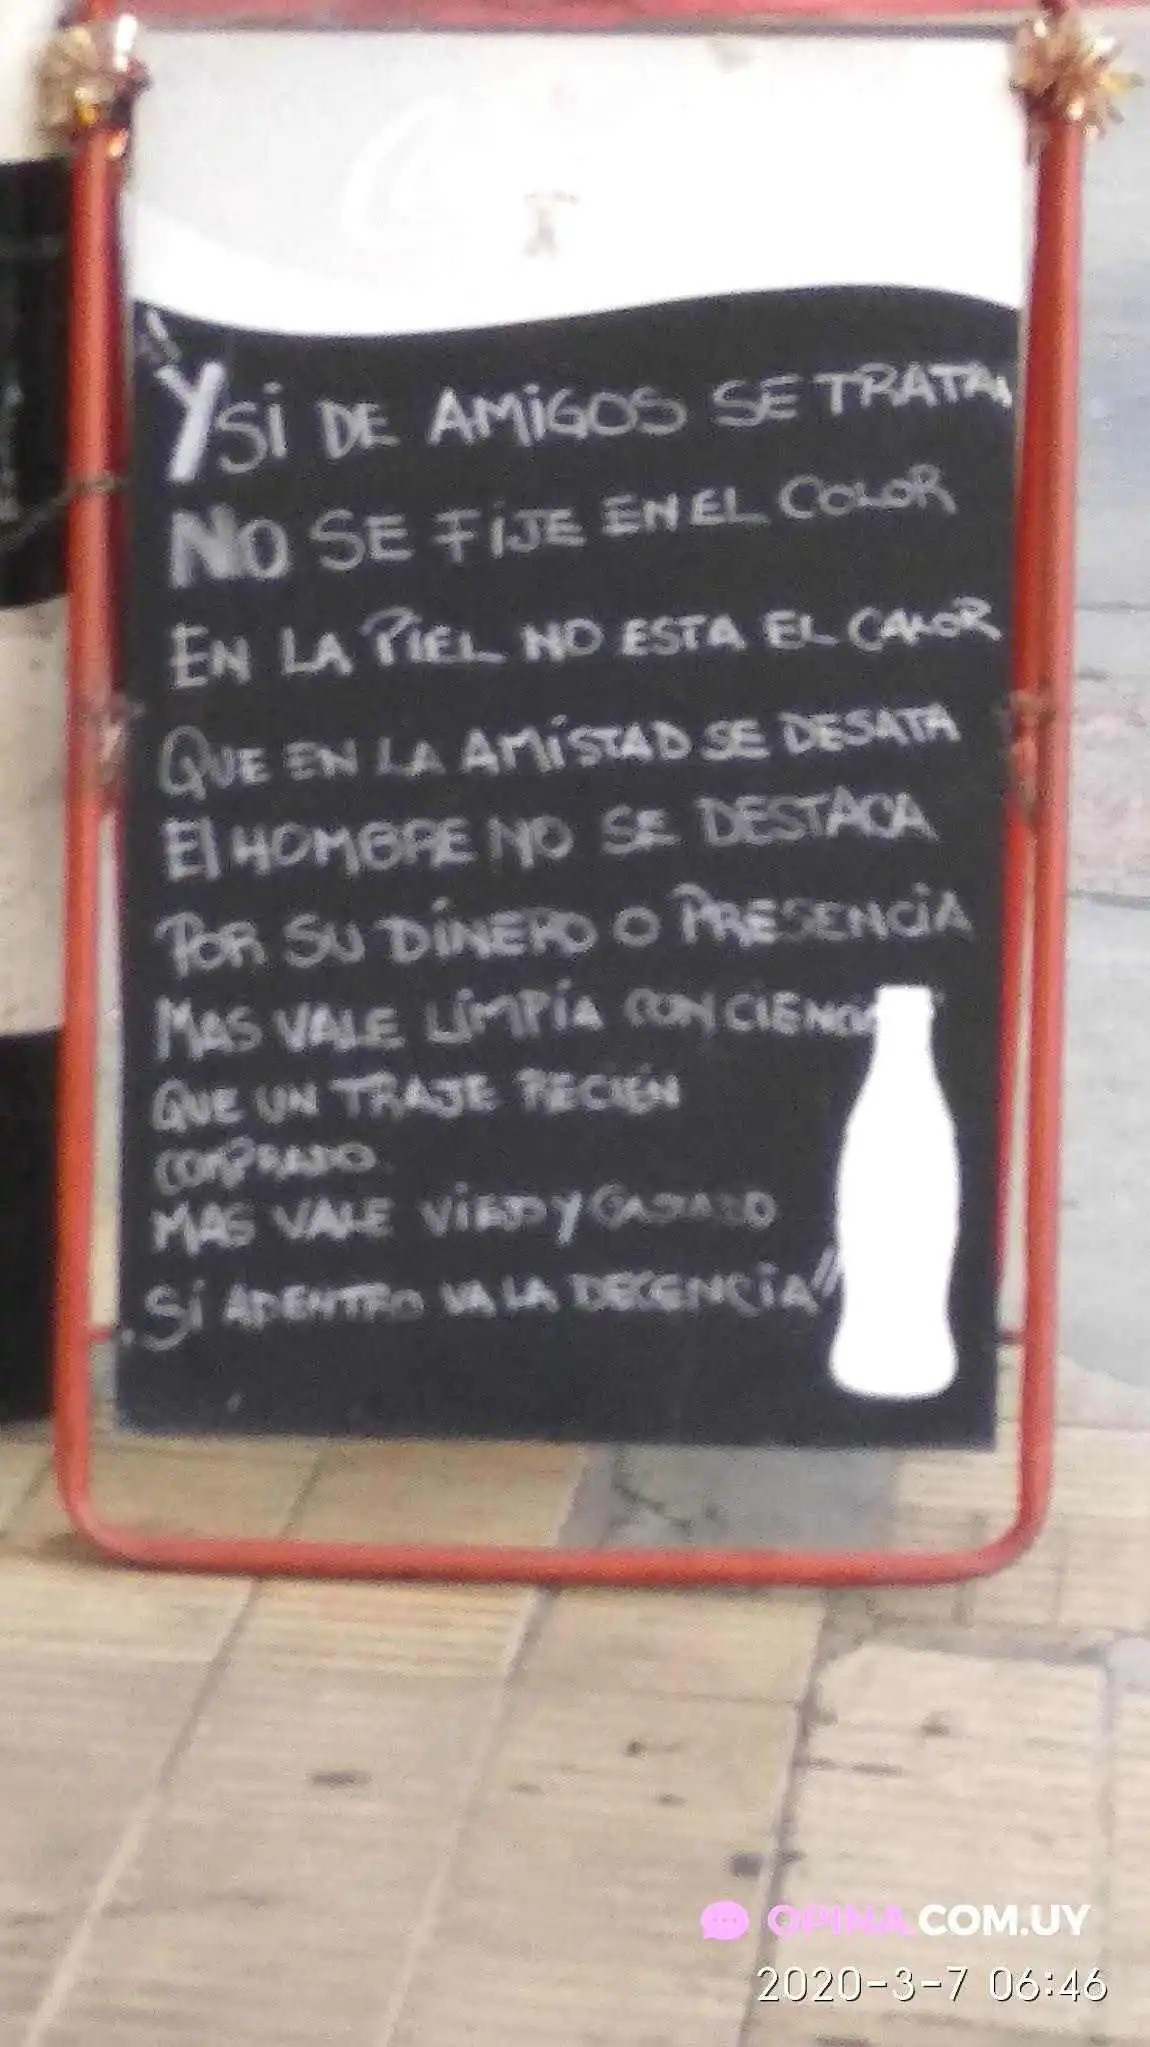 "Y Si DE AMiGOS SE TRATA,
NO SE FiJE EN EL COLOR
EN LA PIEL NO ESTA EL CALOR
QUE EN LA AMiSTAD SE DESATA
El HOMBRE NO SE DESTACA
POR SU DiNERO O PRESENCiA
MAS VALE LiMPiA CONCIENCIA
QUE UN TRAJE RECiEN
COMPRADO.
MAS VALE ViEJO Y GASTADO
Si ADENTRO VA LA DECENCiA"
OPINA.COM.UY
2020-3-7 06:46